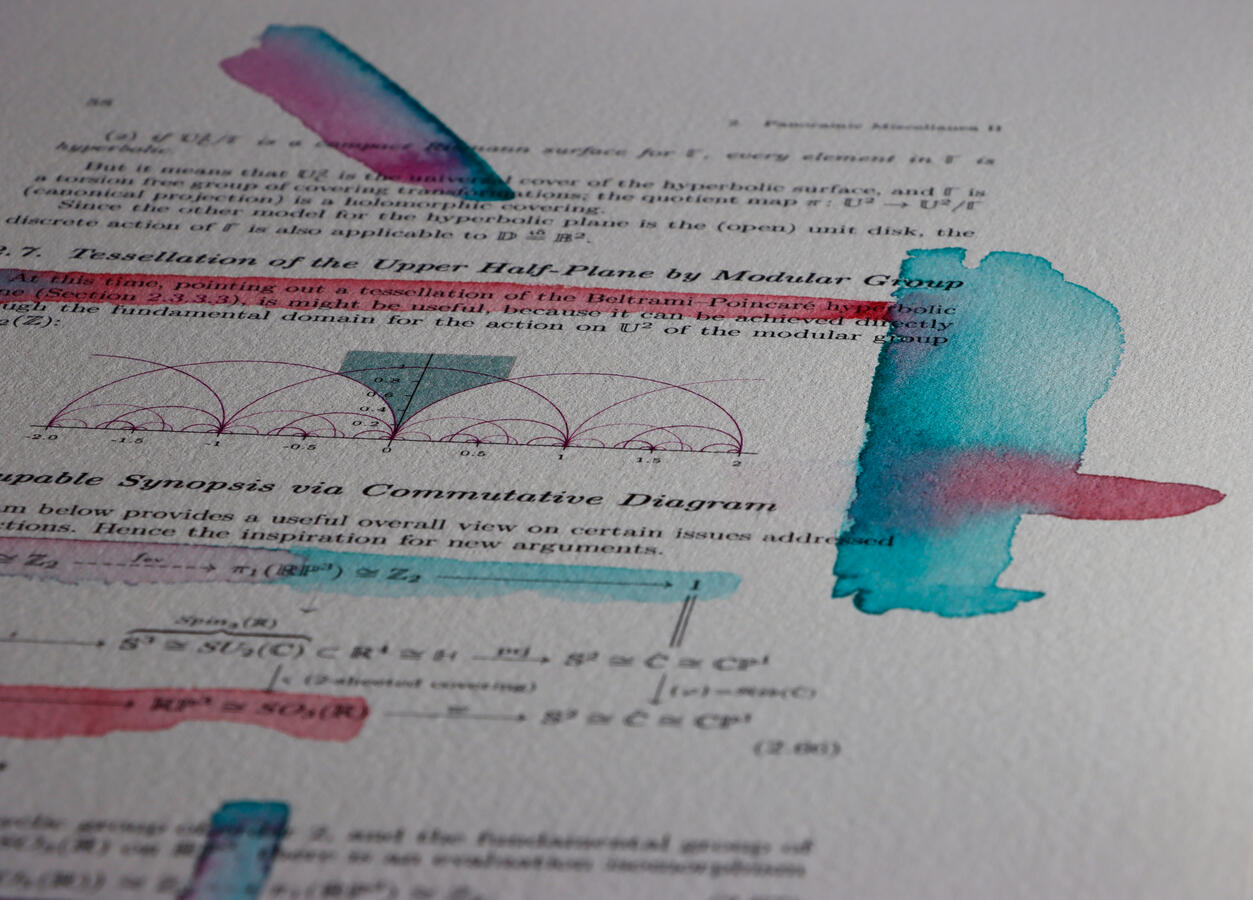 2 Panoramic Miscellanea II
is a compact Riemann surface for 𝕋, every element in 𝕋 is
hyperbolic.
But it means that 𝕌² is the universal cover of the hyperbolic surface, and 𝕋 is
a torsion free group of covering transformations; the quotient map π: 𝕌² → 𝕌²/𝕋
(canonical projection) is a holomorphic covering.
Since the other model for the hyperbolic plane is the (open) unit disk, the
discrete action of 𝕋 is also applicable to 𝔻
.7. Tessellation of the Upper Half-Plane by Modular Group
At this time, pointing out a tessellation of the Beltrami–Poincaré hyperbolic
ne (Section 2.3.3.3), is might be useful, because it can be achieved directly
ugh the fundamental domain for the action on 𝕌² of the modular group
₂(ℤ):
1
0.8
0.6
0.4
0.2
-2.0 -1.5 -1 -0.5 0 0.5 1 1.5 2
upable Synopsis via Commutative Diagram
m below provides a useful overall view on certain issues addressed
ctions. Hence the inspiration for new arguments.
≅ ℤ₂ → π₁(ℝℙ³) ≅ ℤ₂ → 1
Spin₃(ℝ)
𝕊³ ≅ SU₂(ℂ) ⊂ ℝ⁴ ≅ ℍ → 𝕊² ≅ Ĉ ≅ ℂℙ¹
(2-sheeted covering)
→ ℝℙ³ ≅ SO₃(ℝ) → 𝕊² ≅ Ĉ ≅ ℂℙ¹
(2.66)
group of 2, and the fundamental group of
there is an evaluation isomorphism